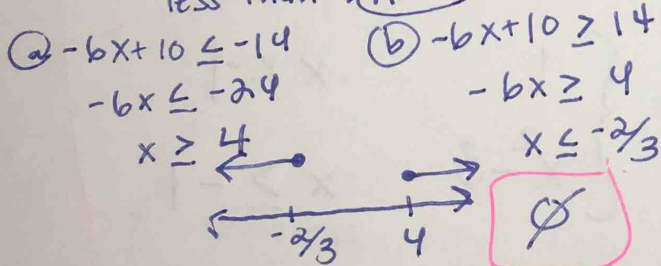 less than
ⓐ -6x+10 ≤ -14
-6x ≤ -24
x ≥ 4
ⓑ -6x+10 ≥ 14
-6x ≥ 4
x ≤ -2/3
-2/3 4
∅